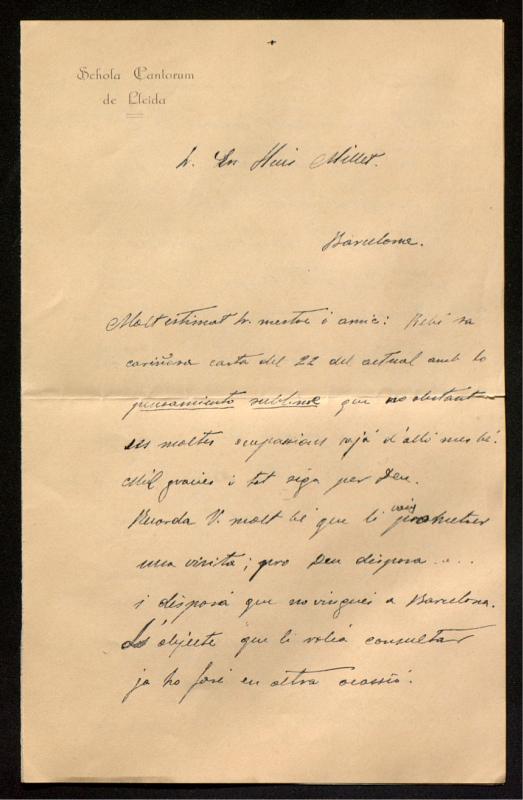 Schola Cantorum
de Lleida
Sr. En Lluis Millet.
Barcelona.
Molt estimat Sr. mestre i amic: Rebí sa
cariñosa carta del 22 del actual amb lo
pensamiento sublime que no obstant
ses moltes ocupassions
Mil gracies i tot siga per Deu.
Recorda V. molt bé que li vaig prometrer
una visita; pro Deu disposa....
i disposá que no vingués a Barcelona.
Lo objecte que li voliá consultar
ja ho faré en altra ocassió.